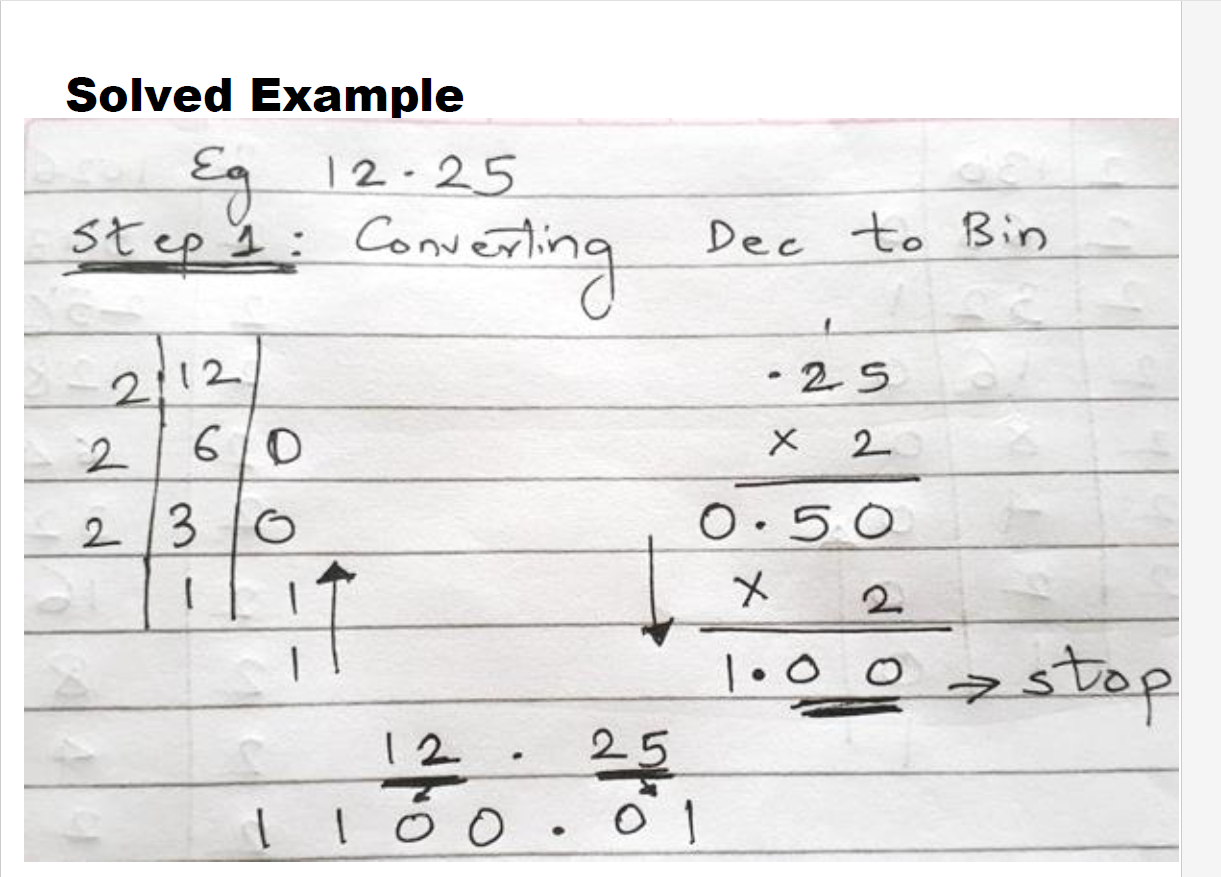 Solved Example
Eg 12.25
Step 1: Converting Dec to Bin
2 12
2 6 0
2 3 0
1 1
1
.25
× 2
0.50
× 2
1.00 → stop
12 . 25
1100.01